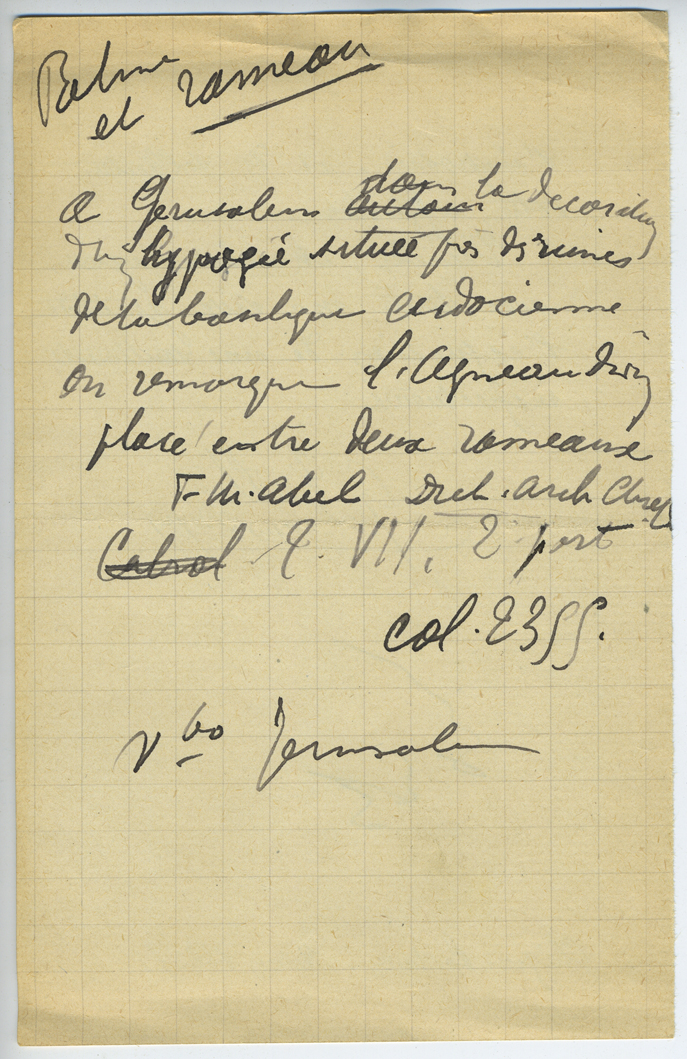 Palme
et rameau
a Jerusalem dans la decoration
d'un hypogée située près des ruines
de la basilique eudocienne
on remarque l'Agneau divin
placé entre deux rameaux
F-M. Abel Dict. arch Chret
Cabrol T. VII, 2 part
col. 2355.
vbo Jerusalem